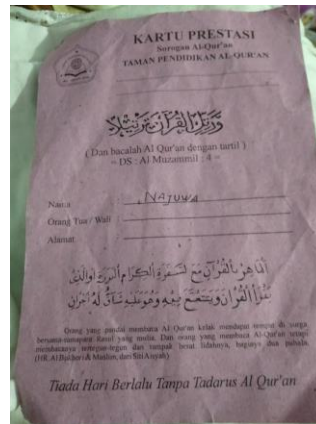 KARTU PRESTASI
Sorogan Al-Qur'an
TAMAN PENDIDIKAN AL-QUR'AN
وَرَتِّلِ الْقُرْآنَ تَرْتِيلًا
( Dan bacalah Al Qur'an dengan tartil )
= DS : Al Muzammil : 4 =
Nama : NAJUWA
Orang Tua / Wali :
Alamat :
الْمَاهِرُ بِالْقُرْآنِ مَعَ السَّفَرَةِ الْكِرَامِ الْبَرَرَةِ وَالَّذِى
يَقْرَأُ الْقُرْآنَ وَيَتَتَعْتَعُ فِيهِ وَهُوَ عَلَيْهِ شَاقٌّ لَهُ أَجْرَانِ
Orang yang pandai membaca Al Quran kelak mendapat tempat di surga
bersama-sama para Rasul yang mulia. Dan orang yang membaca Al-Qur'an tetapi
membacanya tersegut-tegun dan nampak berat lidahnya, baginya dua pahala.
(HR. Al Bukhari & Muslim, dari Siti Aisyah)
Tiada Hari Berlalu Tanpa Tadarus Al Qur'an